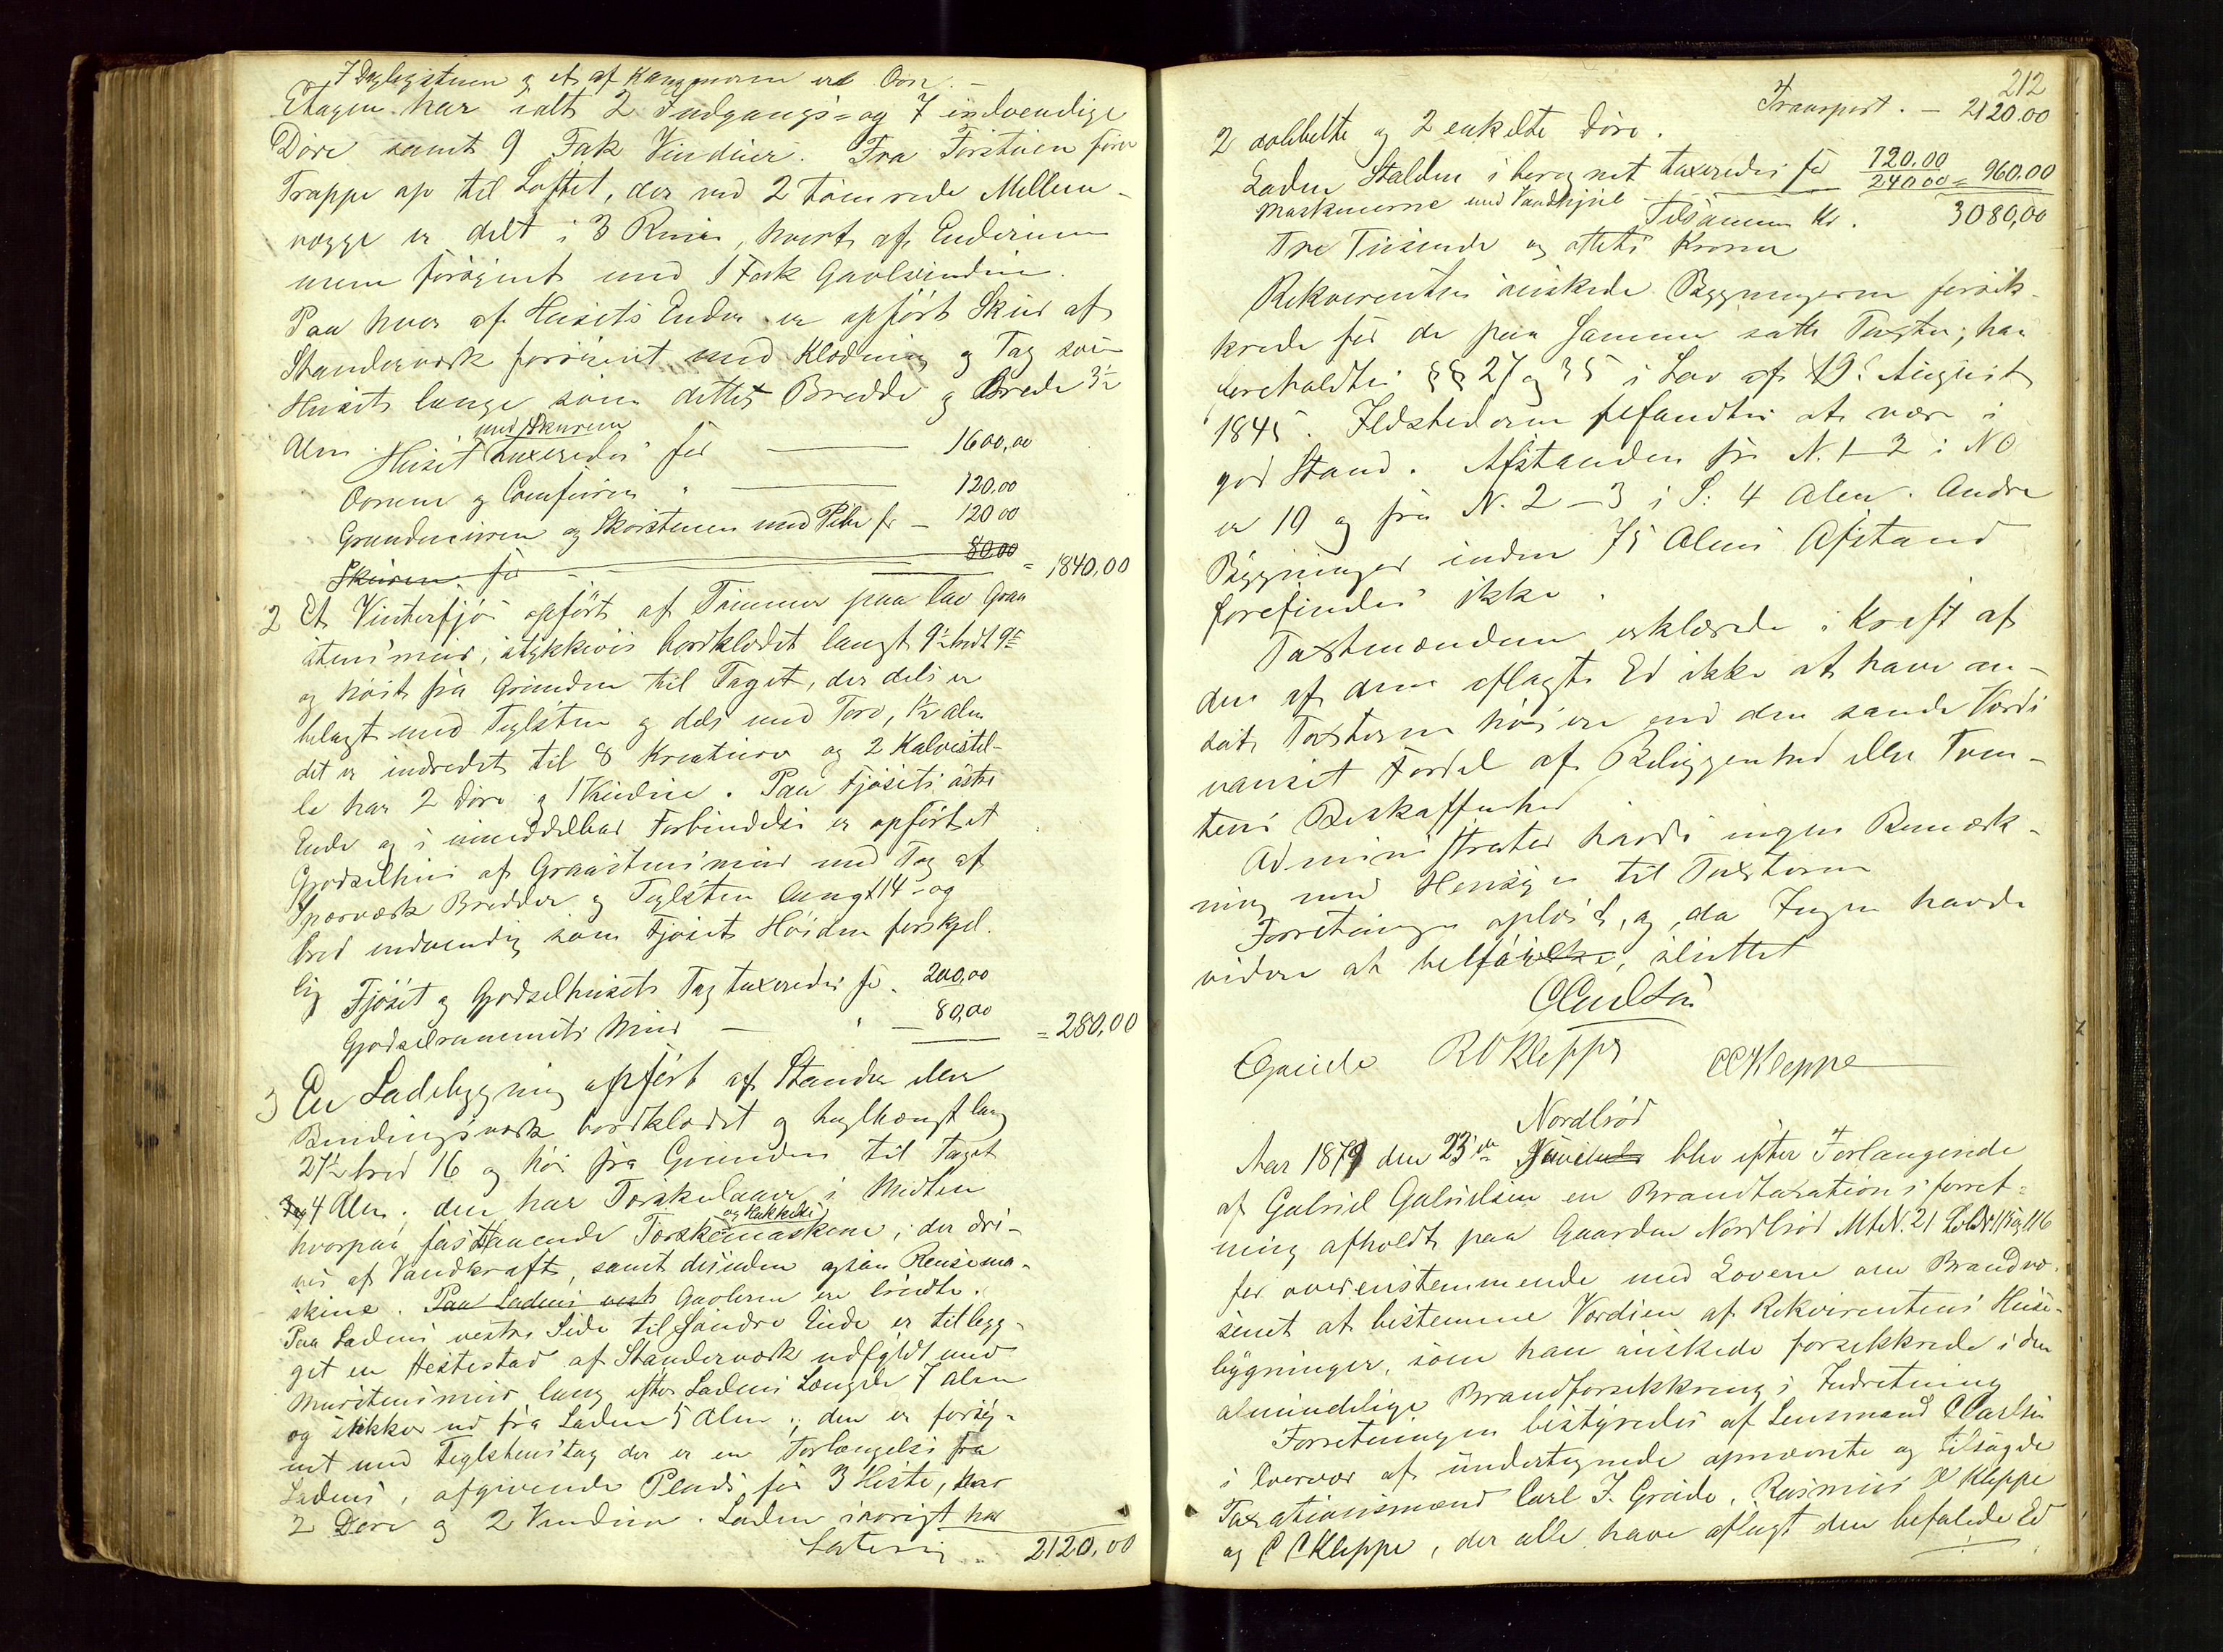 I Dagligstuen og et af Kammerne ere Ovn. –
Etagen har ialt 2 Indgangs- og 7 indvendige
Döre samt 9 Fak Vinduer. Fra Forstuen förer
Trappe op til Loftet, der ved 2 tömrede Mellem-
vægge er delt i 3 Rum, hvert af Enderum-
mene forsynet med 1 Fak Gavlvindue.
Paa hver af Husets Ender er opfört Skur af
Standerværk forsynet med Klædning og Tag som
Husets lange som dettes Bredde og Brede 3½
Alen.
med Skurene
Huset taxeredes för 1600,00
Ovnene og Comfuren " 120,00
Grundmuren og Skorstenen med Pibe for – 120 00
Skurene for 80 00 = 1840,00
2 Et Vinterfjös opfört af Tömmer paa lav Graa
stensmur, stykkevis bordklædt langt 9½ bredt 9½
og höit fra Grunden til Taget, der dels er
belagt med Teglsten og dels med Torv, 1½ Alen
det er indredet til 8 Kreaturer og 2 Kalvestal-
le har 2 Döre og 1 Vindue. Paa Fjösets östre
Ende og i umiddelbar Forbindelse er opfört et
Gjödselhus af Graastensmur med Tag af
Sparværk Bredder og Teglsten langt 14 og
bred indvendig som Fjöset Höiden forskjel-
lig
Fjöset og Gjödselhusets Tag taxeredes för 200,00
Gjödselrummets Mur – " – 80,00 = 280,00
3 En Ladebygning opfört af Stander eller
Bindingsværk bordklædt og teglhængt lang
27½ bred 16 og höi fra Grunden til Taget
4 Alen. den har Tærskelaave i Midten
og Hakkelse
hvorpaa faststaaende Tærskemaskine, der dri-
ves af Vandkraft, samt desuden ogsaa Rensema-
skine. Paa Ladens vest Gavlerne ere brudte.
Paa Ladens vestre Side til söndre Ende er tilbyg-
get en Hestestad af Standerværk udfyldt med
Murstensmur lang efter Ladens Længde 7 Alen
og stikker ud fra Laden 5 Alen; den er forsy-
net med Teglstenstag der er en Forlængelse fra
Ladens, afgivende Plads for 3 Heste, har
2 Döre og 2 Vinduer. Laden iövrigt har
Lateris .. 2120,00
212
Transport. – 2120.00
2 dobbelte og 2 enkelte Döre.
Laden Stalden iberegnet taxeredes för 720.00
Maskinerne med Vandhjul – 240 00 = 960.00
Tilsammen Kr. 3080,00
Tre Tusinde og otteti Kroner
Rekvirenten önskede Bygningerne forsik-
krede for de paa samme satte Taxter; han
foreholdtes §§ 27 og 35 i Lov af 19. August
1845. Ildstederne befandtes at være i
god Stand. Afstanden fra N. 1–2 i NO
er 19 og fra N. 2–3 i S: 4 Alen. Andre
Bygninger inden 75 Alens Afstand
forefindes ikke.
Taxtmændene erklærede i Kraft af
den af dem aflagte Ed ikke at have an-
sat Taxterne höiere end den sande Værdi
uanset Fordel af Beliggenhed eller Tom-
tens Beskaffenhed
Administrator havde ingen Bemærk-
ning med Hensyn til Taxterne
Forretningen oplæst, og, da Ingen havde
videre at, sluttet
CCarlsen
CGrude R O Kleppe CCKleppe
Nordbröd
Aar 1879 den 23de blev efter Forlangende
af Gabriel Gabrielsen en Brandtaxationsforret-
ning afholdt paa Gaarden Nordbröd Mt.N. 21 L.N. 115 og 116
for overensstemmende med Lovene om Brandvæ-
senet at bestemme Værdien af Rekvirentens Huse-
bygninger, som han önskede forsikkrede i den
almindelige Brandforsikkrings Indretning
Forretningen bestyredes af Lensmand C Carlsen
i Overvær af undertegnede opnævnte og tilsagde
Taxationsmænd Carl J. Grude, Rasmus O Kleppe
og C C Kleppe, der alle have aflagt den befalede Ed